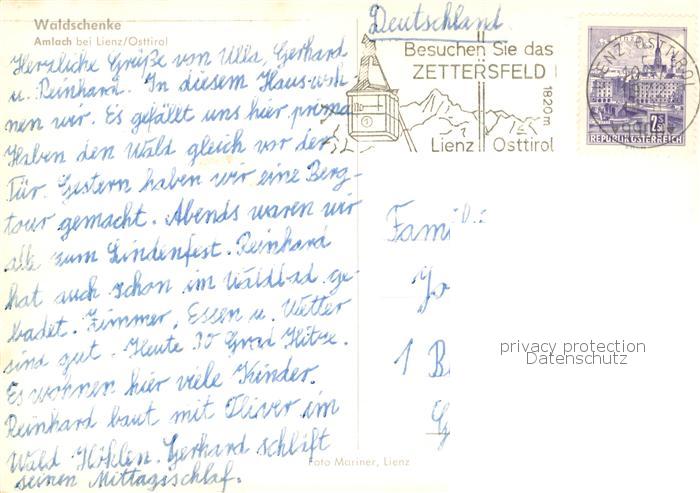 Waldschenke
Amlach bei Lienz/Osttirol
Herzliche Grüße von Ulla, Gerhard
u. Reinhard. In diesem Haus woh-
nen wir. Es gefällt uns hier prima
Haben den Wald gleich vor der
Tür. Gestern haben wir eine Berg-
tour gemacht. Abends waren wir
alle zum Lindenfest. Reinhard
hat auch schon im Waldbad ge-
badet. Zimmer, Essen u. Wetter
sind gut. Heute 30 Grad Hitze.
Es wohnen hier viele Kinder.
Reinhard baut mit Oliver im
Wald Höhlen. Gerhard schläft
seinen Mittagsschlaf.
Foto Mariner, Lienz
Deutschland
Besuchen Sie das
ZETTERSFELD
1820m
Lienz Osttirol
LIENZ, OSTTIROL
2 S
REPUBLIK ÖSTERREICH
Fami
Jo
1 B
G
privacy protection
Datenschutz